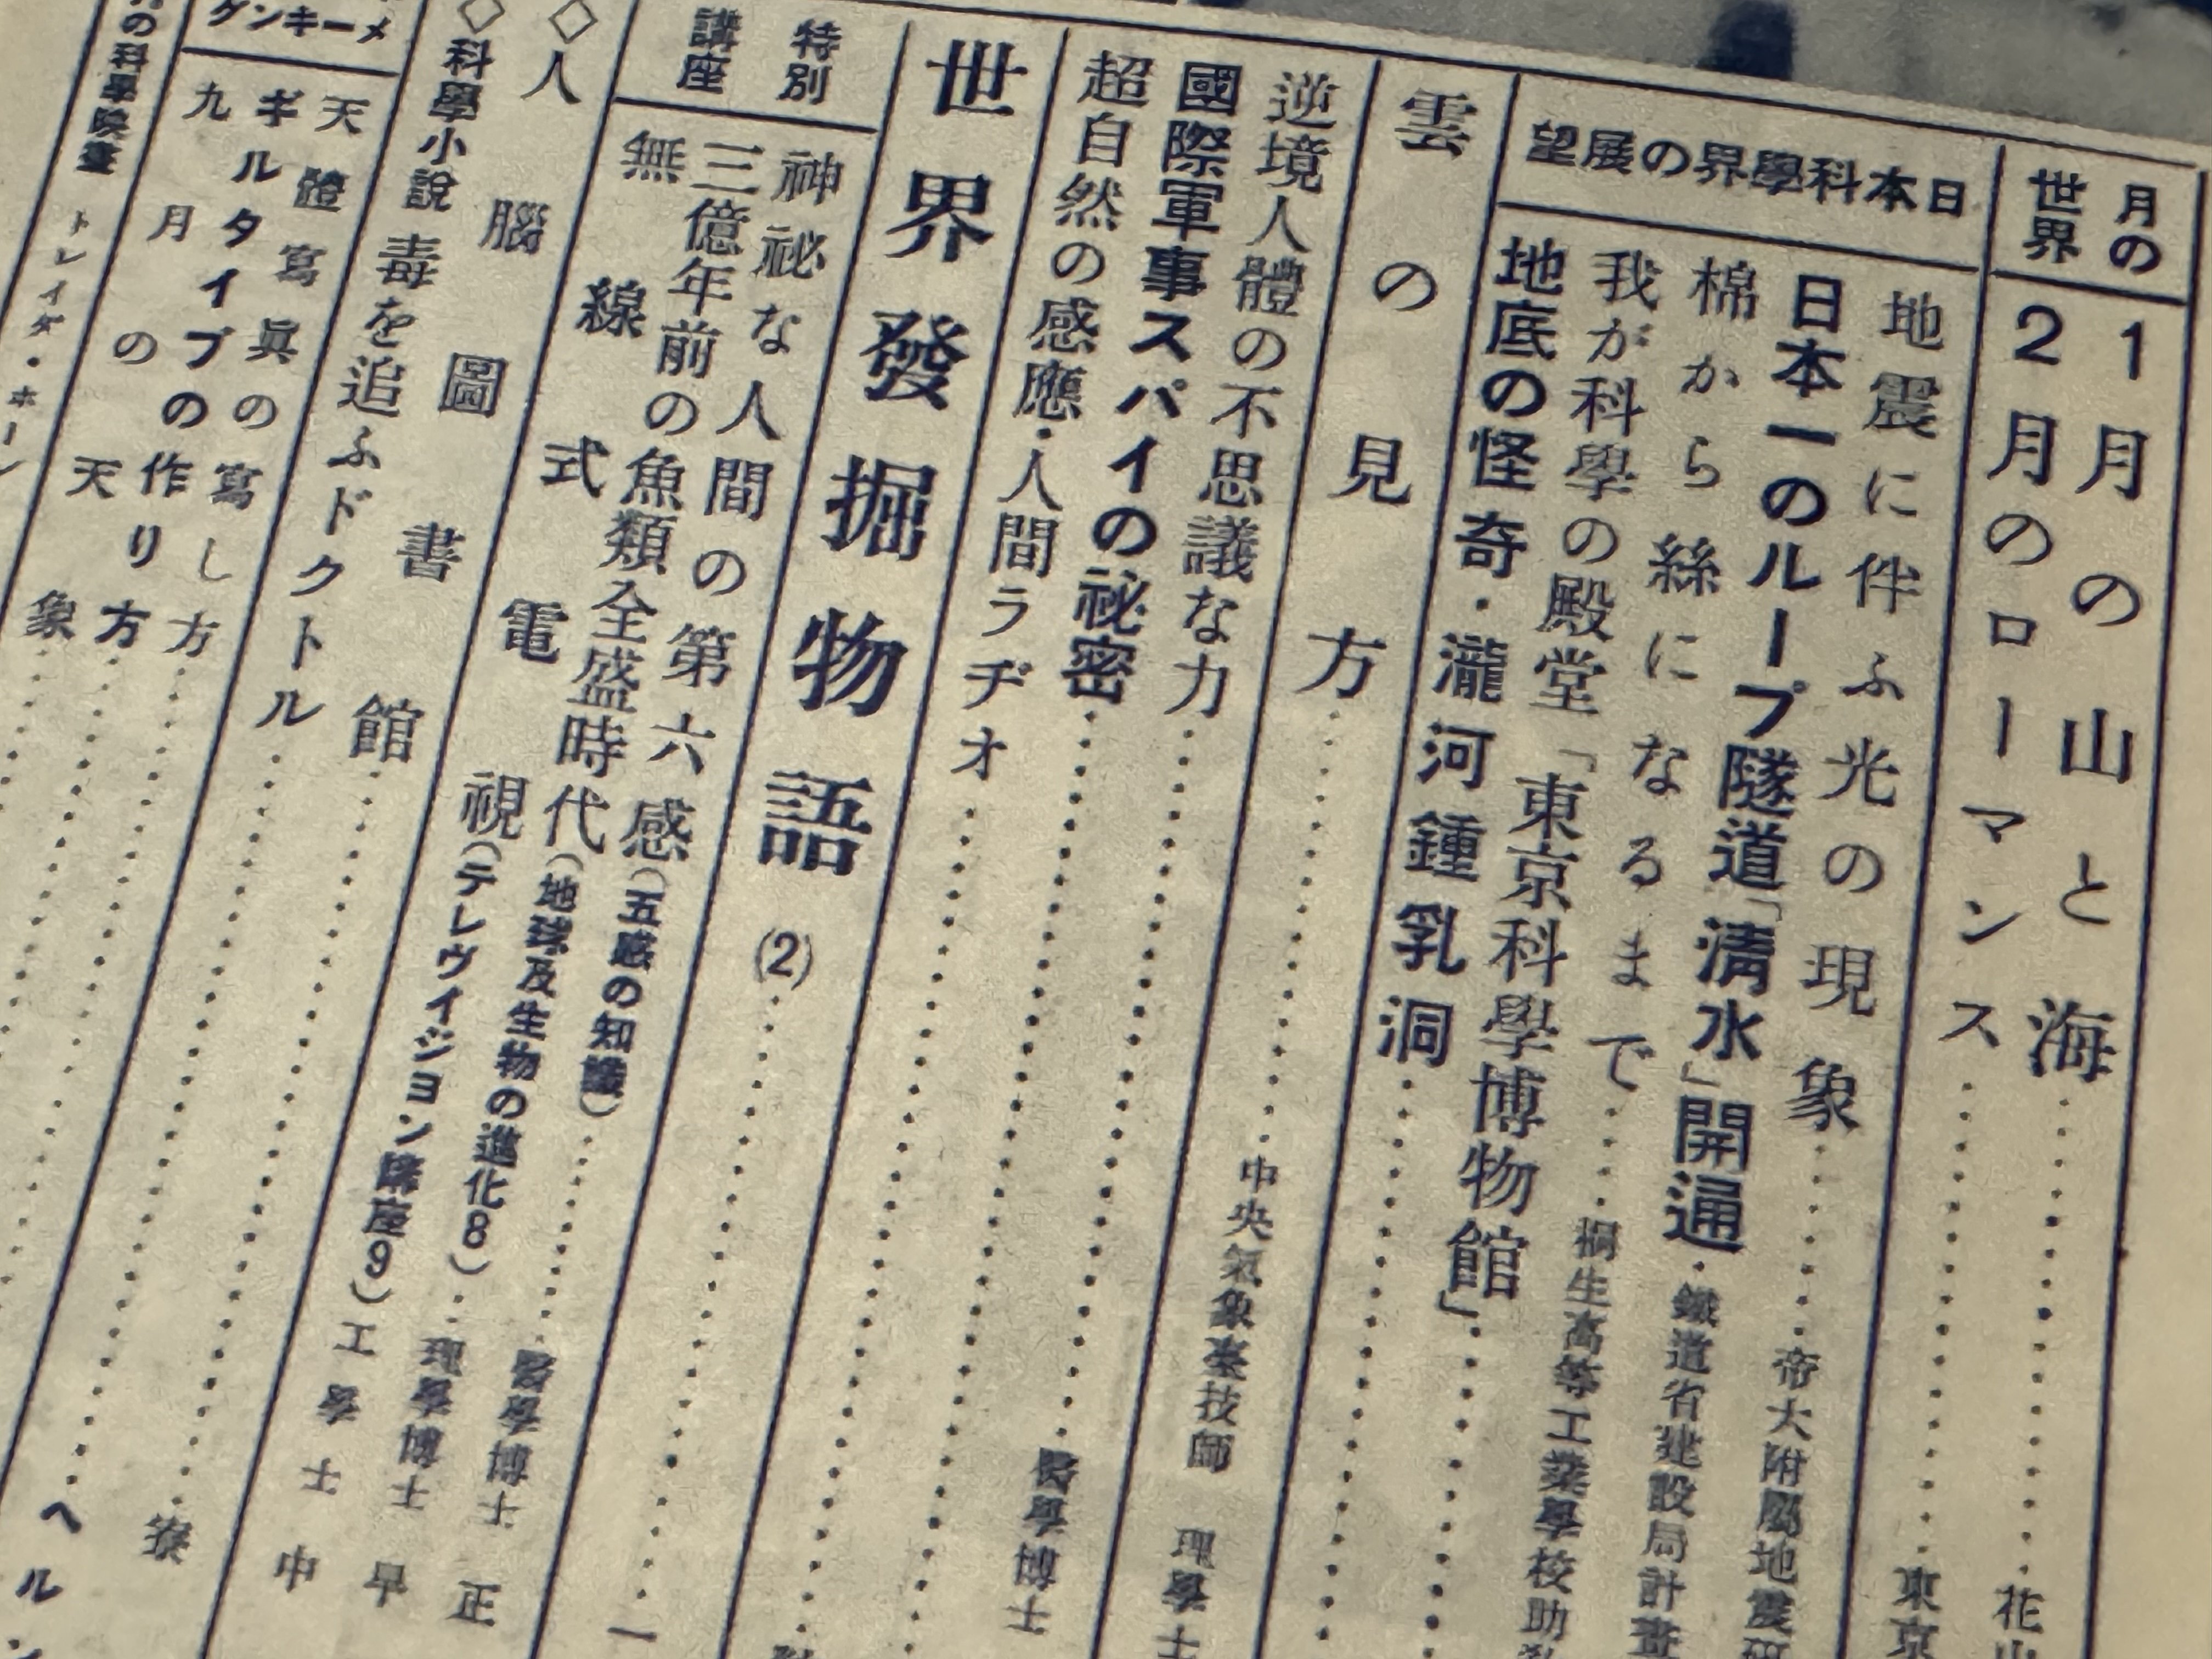 月の
世界
1月の山と海
2月のローマンス
東京
日本科學界の展望
地震に伴ふ光の現象
帝大附屬地震研
日本一のループ隧道「淸水」開通
鐵道省建設局計畫
棉から絲になるまで
桐生高等工業學校助教
我が科學の殿堂「東京科學博物館」
地底の怪奇・瀧河鍾乳洞
雲の見方
中央氣象臺技師
理學士
逆境人體の不思議な力
國際軍事スパイの祕密
醫學博士
超自然の感應・人間ラヂオ
世界發掘物語(2)
特別
講座
神祕な人間の第六感(五感の知識)
醫學博士 正
三億年前の魚類全盛時代(地球及生物の進化8)
理學博士 早
無線式電視(テレヴイジヨン講座9)
工學士 中
◇人腦圖書館
◇科學小說 毒を追ふドクトル
メーキング
天體寫眞の寫し方
ギルタイプの作り方
九月の天象
の科學映畫
トレイダ・ホーン
ヘルン